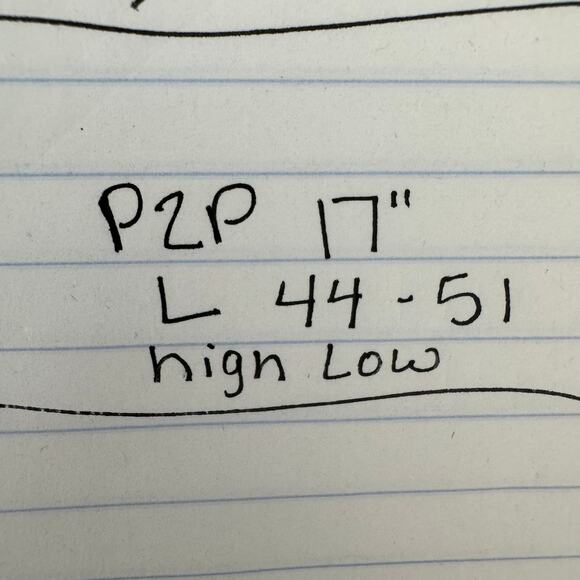 P2P 17"
L 44 - 51
high Low